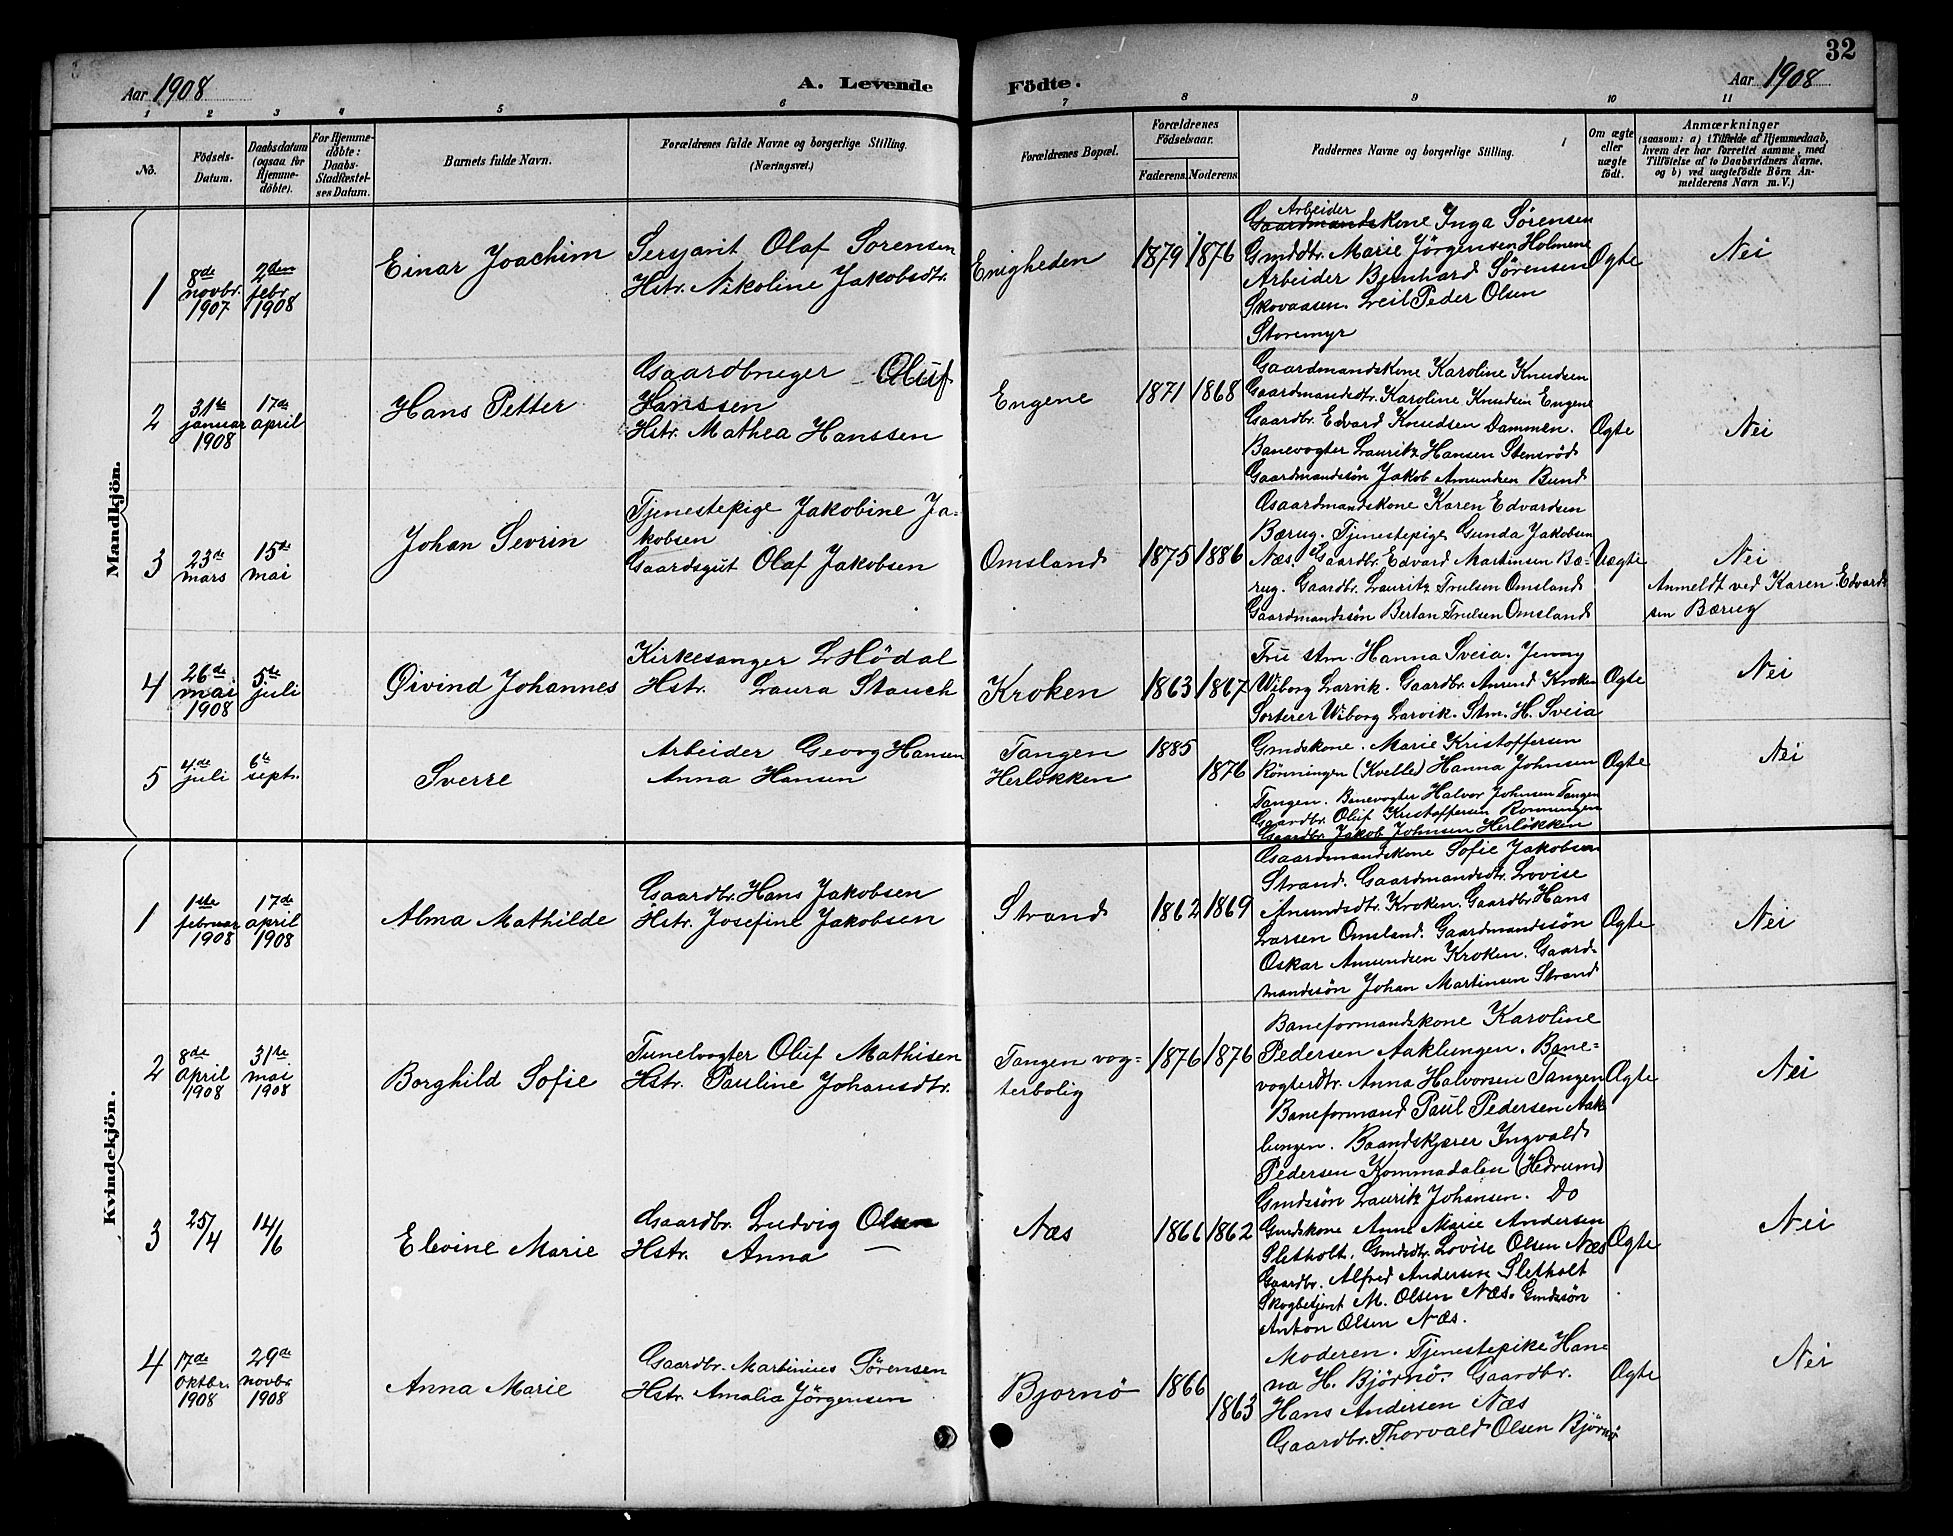 32
Aar 1908
A. Levende Födte.
Aar 1908
1 2 3 4 5 6 7 8 9 10 11
No.
Födsels-Datum.
Daabsdatum (ogsaa for Hjemme-döbte).
For Hjemme-döbte: Daabs-Stadfæstel-ses Datum.
Barnets fulde Navn.
Forældrenes fulde Navne og borgerlige Stilling.
(Næringsvei.)
Forældrenes Bopæl.
Forældrenes Födselsaar.
Faderens. Moderens.
Faddernes Navne og borgerlige Stilling.
Om ægte eller uægte födt.
Anmærkninger
(saasom: a) i Tilfælde af Hjemmedaab,
hvem der har forrettet samme, med
Tilföielse af to Daabsvidners Navne,
og b) ved uægtefödte Börn An-
melderens Navn m. V.)
Mandkjön.
1
8de novbr. 1907
2den febr. 1908
Einar Joachim
Sersjant Olaf Sorensen
Hstr. Nikoline Jakobsdtr.
Enigheden
1879 1876
Arbeider
Gaardmandskone Inga Sørensen
Gmddtr. Marie Jörgensen Holmene
Arbeider Bernhard Sörensen
Skovaasen. Leil Peder Olsen
Storemyr
Ogte
Nei
2
31te januar 1908
17de april
Hans Petter
Gaardbruger Oluf
Hanssen
Hstr. Mathea Hanssen
Engene
1871 1868
Gaardmandskone Karoline Knudsen
Gaardmandsdtr. Karoline Knudsen Engene
Gaardbr. Edvard Knudsen Dammen.
Banevogter Lauritz Hansen Stensröd
Gaardmandssön Jakob Amundsen Bund
Ægte
Nei
3
23de mars
15de mai
Johan Sevrin
Tjenestepige Jakobine Ja-
kobsen
Gaardsgut Olaf Jakobsen
Omsland
1875 1886
Gaardmandskone Karen Edvardsen
Bærug. Tjenestepige Gunda Jakobsen
Næs. Gaardbr. Edvard Martinsen Bæ-
rug. Gaardbr. Lauritz Trulsen Omsland
Gaardmandssön Bertan Trulsen Omsland
Uægte
Nei
Anmeldt ved Karen Edvard-
sen Bærug
4
26de mai 1908
5te juli
Øivind Johannes
Kirkesanger L Hödal
Hstr. Laura Stauch
Kroken
1863 1867
Fru stm. Hanna Sveia. Jenny
Wiborg Larvik. Gaardbr. Anund Kroken
Sorterer Wiborg Larvik. Stm. H. Sveia
Ogte
Nei
5
4de juli
6te septr.
Sverre
Arbeider Georg Hansen
Anna Hansen
Tangen
Herløkken
1885
1876
Gmdskone. Marie Kristoffersen
Rönningen (Kvelle) Hanna Johnsen
Tangen. Banevogter Halvor Johnsen Tangen
Gaardbr. Oluf Kristoffersen Ronningen
Gaardbr. Jakob Johnsen Herlökken
Ogte
Nei
Kvindekjön.
1
1ste februar 1908
17de april 1908
Alma Mathilde
Gaardbr. Hans Jakobsen
Hstr. Josefine Jakobsen
Strand
1862 1869
Gaardmandskone Sofie Jakobsen
Strand. Gaardmandsdtr. Lovise
Anundsdtr. Kroken. Gaardbr. Hans
Larsen Omsland. Gaardmandssön
Oskar Amundsen Kroken. Gaard-
mandssön Johan Martinsen Strand
Ogte
Nei
2
8de April 1908
31te mai 1908
Borghild Sofie
Tunelvogter Oluf Mathisen
Hstr. Pauline Johansdtr.
Tangen vog-
terbolig
1876 1876
Baneformandskone Karoline
Pedersen Aaklungen. Bane-
vogterdtr. Anna Halvorsen Tangen
Baneformand Paul Pedersen Aak-
lungen. Baandskjærer Ingvald
Pedersen Kommadalen (Hedrum)
Gmdssön Lauritz Johansen. Do
Ogte
Nei
3
25/4
14/6
Elevine Marie
Gaardbr. Ludvig Olsen
Hstr. Anna —
Næs
1866 1862
Gmdskone Anne Marie Andersen
Sletholt. Gmdsdtr. Lovise Olsen Næs
Gaardbr. Alfred Andersen Sletholt
Skogbetjent M. Olsen Næs. Gmdssön
Anton Olsen Næs.
Ogte
Nei
4
17de Oktbr. 1908
29de novbr. 1908
Anna Marie
Gaardbr. Martinius Sörensen
Hstr. Amalia Jörgensen
Bjornö
1866
1863
Moderen. Tjenestepike Han-
na H. Björnö. Gaardbr.
Hans Andersen Næs
Gaardbr. Thorvald Olsen Björnö
Ogte
Nei